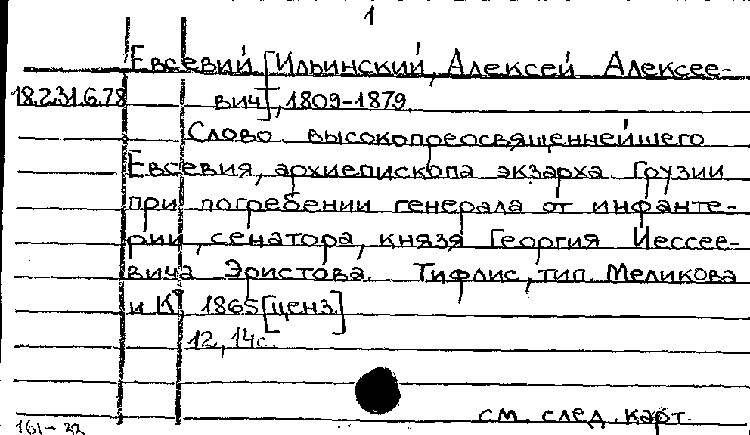 1
Евсевий [Ильинский, Алексей Алексее-
18.231.6.78 вич], 1809-1879.
Слово высокопреосвященнейшего
Евсевия, архиепископа экзарха Грузии
при погребении генерала от инфанте-
рии, сенатора, князя Георгия Иессее-
вича Эристова. Тифлис, тип. Меликова
и К°, 1865 [ценз.]
12, 14с.
см. след. карт.
161-22